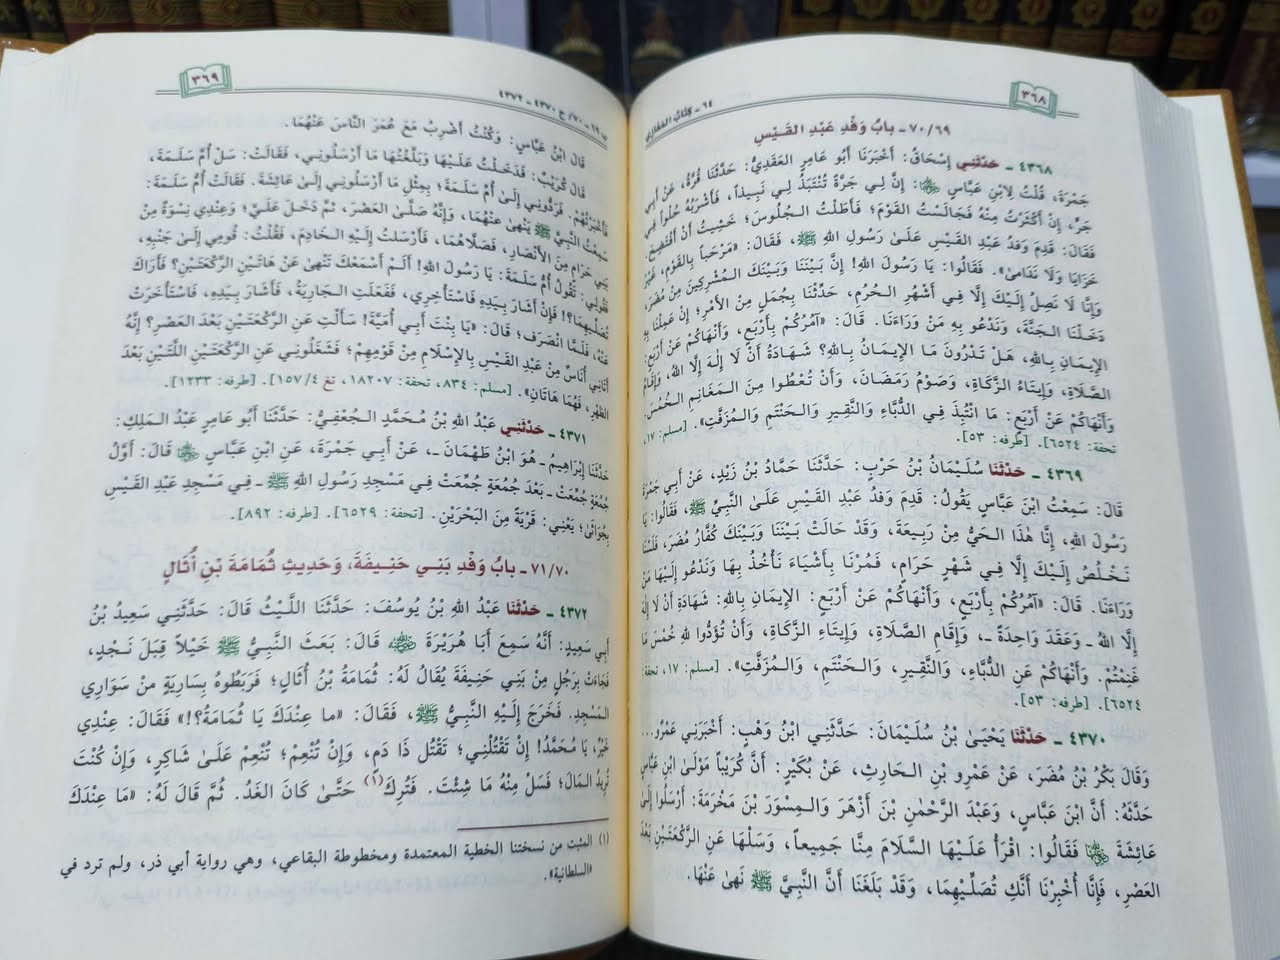 ٣٦٨
٦٤ - كتاب المغازي
٧٠/٦٩ - بابُ وَفْدِ عَبْدِ القَيْسِ
٤٣٦٨ - حَدَّثَنِي إِسْحَاقُ: أَخْبَرَنَا أَبُو عَامِرٍ العَقَدِيُّ: حَدَّثَنَا قُرَّةُ، عَنْ أَبِي
جَمْرَةَ، قُلْتُ لِابْنِ عَبَّاسٍ ﵄: إِنَّ لِي جَرَّةً تُنْتَبَذُ لِي نَبِيذاً، فَأَشْرَبُهُ حُلْواً فِي
جَرٍّ، إِنْ أَكْثَرْتُ مِنْهُ فَجَالَسْتُ القَوْمَ؛ فَأَطَلْتُ الـجُلُوسَ؛ خَشِيتُ أَنْ أَفْتَضِحَ.
فَقَالَ: قَدِمَ وَفْدُ عَبْدِ القَيْسِ عَلَىٰ رَسُولِ اللهِ ﷺ، فَقَالَ: «مَرْحَباً بِالقَوْمِ، غَيْرَ
خَزَايَا وَلَا نَدَامىٰ». فَقَالُوا: يَا رَسُولَ اللهِ! إِنَّ بَيْنَنَا وَبَيْنَكَ الـمُشْرِكِينَ مِنْ مُضَرَ،
وَإِنَّا لَا نَصِلُ إِلَيْكَ إِلَّا فِي أَشْهُرِ الـحُرُمِ، حَدِّثْنَا بِجُمَلٍ مِنَ الأَمْرِ؛ إِنْ عَمِلْنَا بِهِ
دَخَلْنَا الـجَنَّةَ، وَنَدْعُو بِهِ مَنْ وَرَاءَنَا. قَالَ: «آمُرُكُمْ بِأَرْبَعٍ، وَأَنْهَاكُمْ عَنْ أَرْبَعٍ:
الإِيمَانِ بِاللهِ، هَلْ تَدْرُونَ مَا الإِيمَانُ بِاللهِ؟ شَهَادَةُ أَنْ لَا إِلٰهَ إِلَّا اللهُ، وَإِقَامُ
الصَّلَاةِ، وَإِيتَاءُ الزَّكَاةِ، وَصَوْمُ رَمَضَانَ، وَأَنْ تُعْطُوا مِنَ الـمَغَانِمِ الـخُمُسَ.
وَأَنْهَاكُمْ عَنْ أَرْبَعٍ: مَا انْتُبِذَ فِي الدُّبَّاءِ وَالنَّقِيرِ وَالـحَنْتَمِ وَالـمُزَفَّتِ». [مسلم: ١٧،
تحفة: ٦٥٢٤]. [طرفه: ٥٣].
٤٣٦٩ - حَدَّثَنَا سُلَيْمَانُ بْنُ حَرْبٍ: حَدَّثَنَا حَمَّادُ بْنُ زَيْدٍ، عَنْ أَبِي جَمْرَةَ
قَالَ: سَمِعْتُ ابْنَ عَبَّاسٍ يَقُولُ: قَدِمَ وَفْدُ عَبْدِ القَيْسِ عَلَىٰ النَّبِيِّ ﷺ، فَقَالُوا: يَا
رَسُولَ اللهِ، إِنَّا هٰذَا الـحَيَّ مِنْ رَبِيعَةَ، وَقَدْ حَالَتْ بَيْنَنَا وَبَيْنَكَ كُفَّارُ مُضَرَ، فَلَسْنَا
نَخْلُصُ إِلَيْكَ إِلَّا فِي شَهْرٍ حَرَامٍ، فَمُرْنَا بِأَشْيَاءَ نَأْخُذُ بِهَا وَنَدْعُو إِلَيْهَا مَنْ
وَرَاءَنَا. قَالَ: «آمُرُكُمْ بِأَرْبَعٍ، وَأَنْهَاكُمْ عَنْ أَرْبَعٍ: الإِيمَانِ بِاللهِ: شَهَادَةِ أَنْ لَا إِلٰهَ
إِلَّا اللهُ - وَعَقَدَ وَاحِدَةً -، وَإِقَامِ الصَّلَاةِ، وَإِيتَاءِ الزَّكَاةِ، وَأَنْ تُؤَدُّوا للهِ خُمُسَ مَا
غَنِمْتُمْ. وَأَنْهَاكُمْ عَنِ الدُّبَّاءِ، وَالنَّقِيرِ، وَالـحَنْتَمِ، وَالـمُزَفَّتِ». [مسلم: ١٧، تحفة:
٦٥٢٤]. [طرفه: ٥٣].
٤٣٧٠ - حَدَّثَنَا يَحْيَىٰ بْنُ سُلَيْمَانَ: حَدَّثَنِي ابْنُ وَهْبٍ: أَخْبَرَنِي عَمْرٌو...
وَقَالَ بَكْرُ بْنُ مُضَرَ، عَنْ عَمْرِو بْنِ الـحَارِثِ، عَنْ بُكَيْرٍ: أَنَّ كُرَيْباً مَوْلَىٰ ابْنِ عَبَّاسٍ
حَدَّثَهُ: أَنَّ ابْنَ عَبَّاسٍ، وَعَبْدَ الرَّحْمٰنِ بْنَ أَزْهَرَ وَالـمِسْوَرَ بْنَ مَخْرَمَةَ: أَرْسَلُوا إِلَىٰ
عَائِشَةَ ﵂ فَقَالُوا: اقْرَأْ عَلَيْهَا السَّلَامَ مِنَّا جَمِيعاً، وَسَلْهَا عَنِ الرَّكْعَتَيْنِ بَعْدَ
العَصْرِ، فَإِنَّا أُخْبِرْنَا أَنَّكِ تُصَلِّيْهِمَا، وَقَدْ بَلَغَنَا أَنَّ النَّبِيَّ ﷺ نَهىٰ عَنْهَا.
٣٦٩
ب ٦٩ - ٧٠/ ح ٤٣٧٠ - ٤٣٧٢
قَالَ ابْنُ عَبَّاسٍ: وَكُنْتُ أَضْرِبُ مَعَ عُمَرَ النَّاسَ عَنْهُمَا.
قَالَ كُرَيْبٌ: فَدَخَلْتُ عَلَيْهَا وَبَلَّغْتُهَا مَا أَرْسَلُونِي، فَقَالَتْ: سَلْ أُمَّ سَلَمَةَ،
فَأَخْبَرْتُهُمْ. فَرَدُّونِي إِلَىٰ أُمِّ سَلَمَةَ؛ بِمِثْلِ مَا أَرْسَلُونِي إِلَىٰ عَائِشَةَ. فَقَالَتْ أُمُّ سَلَمَةَ:
سَمِعْتُ النَّبِيَّ ﷺ يَنْهىٰ عَنْهُمَا، وَإِنَّهُ صَلَّىٰ العَصْرَ، ثُمَّ دَخَلَ عَلَيَّ؛ وَعِنْدِي نِسْوَةٌ مِنْ
بَنِي حَرَامٍ مِنَ الأَنْصَارِ، فَصَلَّاهُمَا، فَأَرْسَلْتُ إِلَيْهِ الـخَادِمَ، فَقُلْتُ: قُومِي إِلَىٰ جَنْبِهِ،
فَقُولِي: تَقُولُ أُمُّ سَلَمَةَ: يَا رَسُولَ اللهِ! أَلَمْ أَسْمَعْكَ تَنْهىٰ عَنْ هَاتَيْنِ الرَّكْعَتَيْنِ؟ فَأَرَاكَ
تُصَلِّيهِمَا؟! فَإِنْ أَشَارَ بِيَدِهِ فَاسْتَأْخِرِي، فَفَعَلَتِ الـجَارِيَةُ، فَأَشَارَ بِيَدِهِ، فَاسْتَأْخَرَتْ
عَنْهُ، فَلَمَّا انْصَرَفَ؛ قَالَ: «يَا بِنْتَ أَبِي أُمَيَّةَ! سَأَلْتِ عَنِ الرَّكْعَتَيْنِ بَعْدَ العَصْرِ؟ إِنَّهُ
أَتَانِي أُنَاسٌ مِنْ عَبْدِ القَيْسِ بِالإِسْلَامِ مِنْ قَوْمِهِمْ؛ فَشَغَلُونِي عَنِ الرَّكْعَتَيْنِ اللَّتَيْنِ بَعْدَ
الظُّهْرِ، فَهُمَا هَاتَانِ». [مسلم: ٨٣٤، تحفة: ١٨٢٠٧، تغ ١٥٧/٤]. [طرفه: ١٢٣٣].
٤٣٧١ - حَدَّثَنِي عَبْدُ اللهِ بْنُ مُـحَمَّدٍ الـجُعْفِيُّ: حَدَّثَنَا أَبُو عَامِرٍ عَبْدُ الـمَلِكِ:
حَدَّثَنَا إِبْرَاهِيمُ - هُوَ ابْنُ طَهْمَانَ -، عَنْ أَبِي جَمْرَةَ، عَنِ ابْنِ عَبَّاسٍ ﵄ قَالَ: أَوَّلُ
جُمُعَةٍ جُمِّعَتْ - بَعْدَ جُمُعَةٍ جُمِّعَتْ فِي مَسْجِدِ رَسُولِ اللهِ ﷺ - فِي مَسْجِدِ عَبْدِ القَيْسِ
بِجُوَاثَىٰ؛ يَعْنِي: قَرْيَةً مِنَ البَحْرَيْنِ. [تحفة: ٦٥٢٩]. [طرفه: ٨٩٢].
٧١/٧٠ - بابُ وَفْدِ بَنِي حَنِيفَةَ، وَحَدِيثِ ثُمَامَةَ بْنِ أُثَالٍ
٤٣٧٢ - حَدَّثَنَا عَبْدُ اللهِ بْنُ يُوسُفَ: حَدَّثَنَا اللَّيْثُ قَالَ: حَدَّثَنِي سَعِيدُ بْنُ
أَبِي سَعِيدٍ: أَنَّهُ سَمِعَ أَبَا هُرَيْرَةَ ﵁ قَالَ: بَعَثَ النَّبِيُّ ﷺ خَيْلاً قِبَلَ نَجْدٍ،
فَجَاءَتْ بِرَجُلٍ مِنْ بَنِي حَنِيفَةَ يُقَالُ لَهُ: ثُمَامَةُ بْنُ أُثَالٍ؛ فَرَبَطُوهُ بِسَارِيَةٍ مِنْ سَوَارِي
الـمَسْجِدِ. فَخَرَجَ إِلَيْهِ النَّبِيُّ ﷺ، فَقَالَ: «ما عِنْدَكَ يَا ثُمَامَةُ؟!» فَقَالَ: عِنْدِي
خَيْرٌ، يَا مُـحَمَّدُ! إِنْ تَقْتُلْنِي؛ تَقْتُلْ ذَا دَمٍ، وَإِنْ تُنْعِمْ؛ تُنْعِمْ عَلَىٰ شَاكِرٍ، وَإِنْ كُنْتَ
تُرِيدُ الـمَالَ؛ فَسَلْ مِنْهُ مَا شِئْتَ. فَتُرِكَ(١) حَتَّىٰ كَانَ الغَدُ. ثُمَّ قَالَ لَهُ: «مَا عِنْدَكَ
(١) المثبت من نسختنا الخطية المعتمدة ومخطوطة البقاعي، وهي رواية أبي ذر، ولم ترد في
«السلطانية».